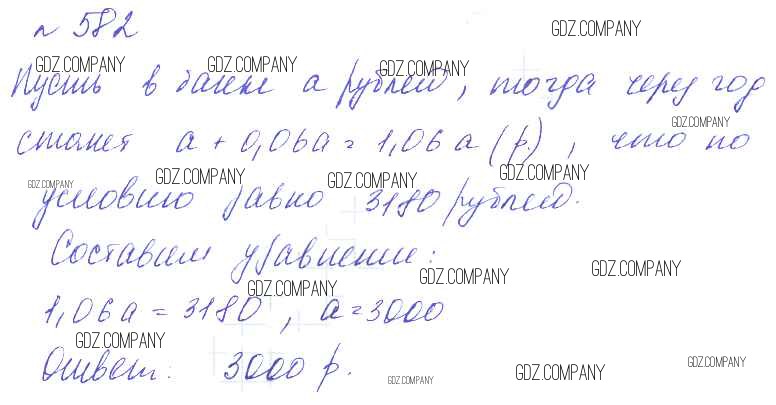 № 582
Пусть в банке a рублей, тогда через год
станет a + 0,06a = 1,06a (р.), что по
условию равно 3180 рублей.
Составим уравнение:
1,06a = 3180, a = 3000
Ответ: 3000 р.
GDZ.COMPANY
GDZ.COMPANY GDZ.COMPANY GDZ.COMPANY
GDZ.COMPANY
GDZ.COMPANY GDZ.COMPANY GDZ.COMPANY GDZ.COMPANY
GDZ.COMPANY GDZ.COMPANY GDZ.COMPANY
GDZ.COMPANY
GDZ.COMPANY GDZ.COMPANY GDZ.COMPANY